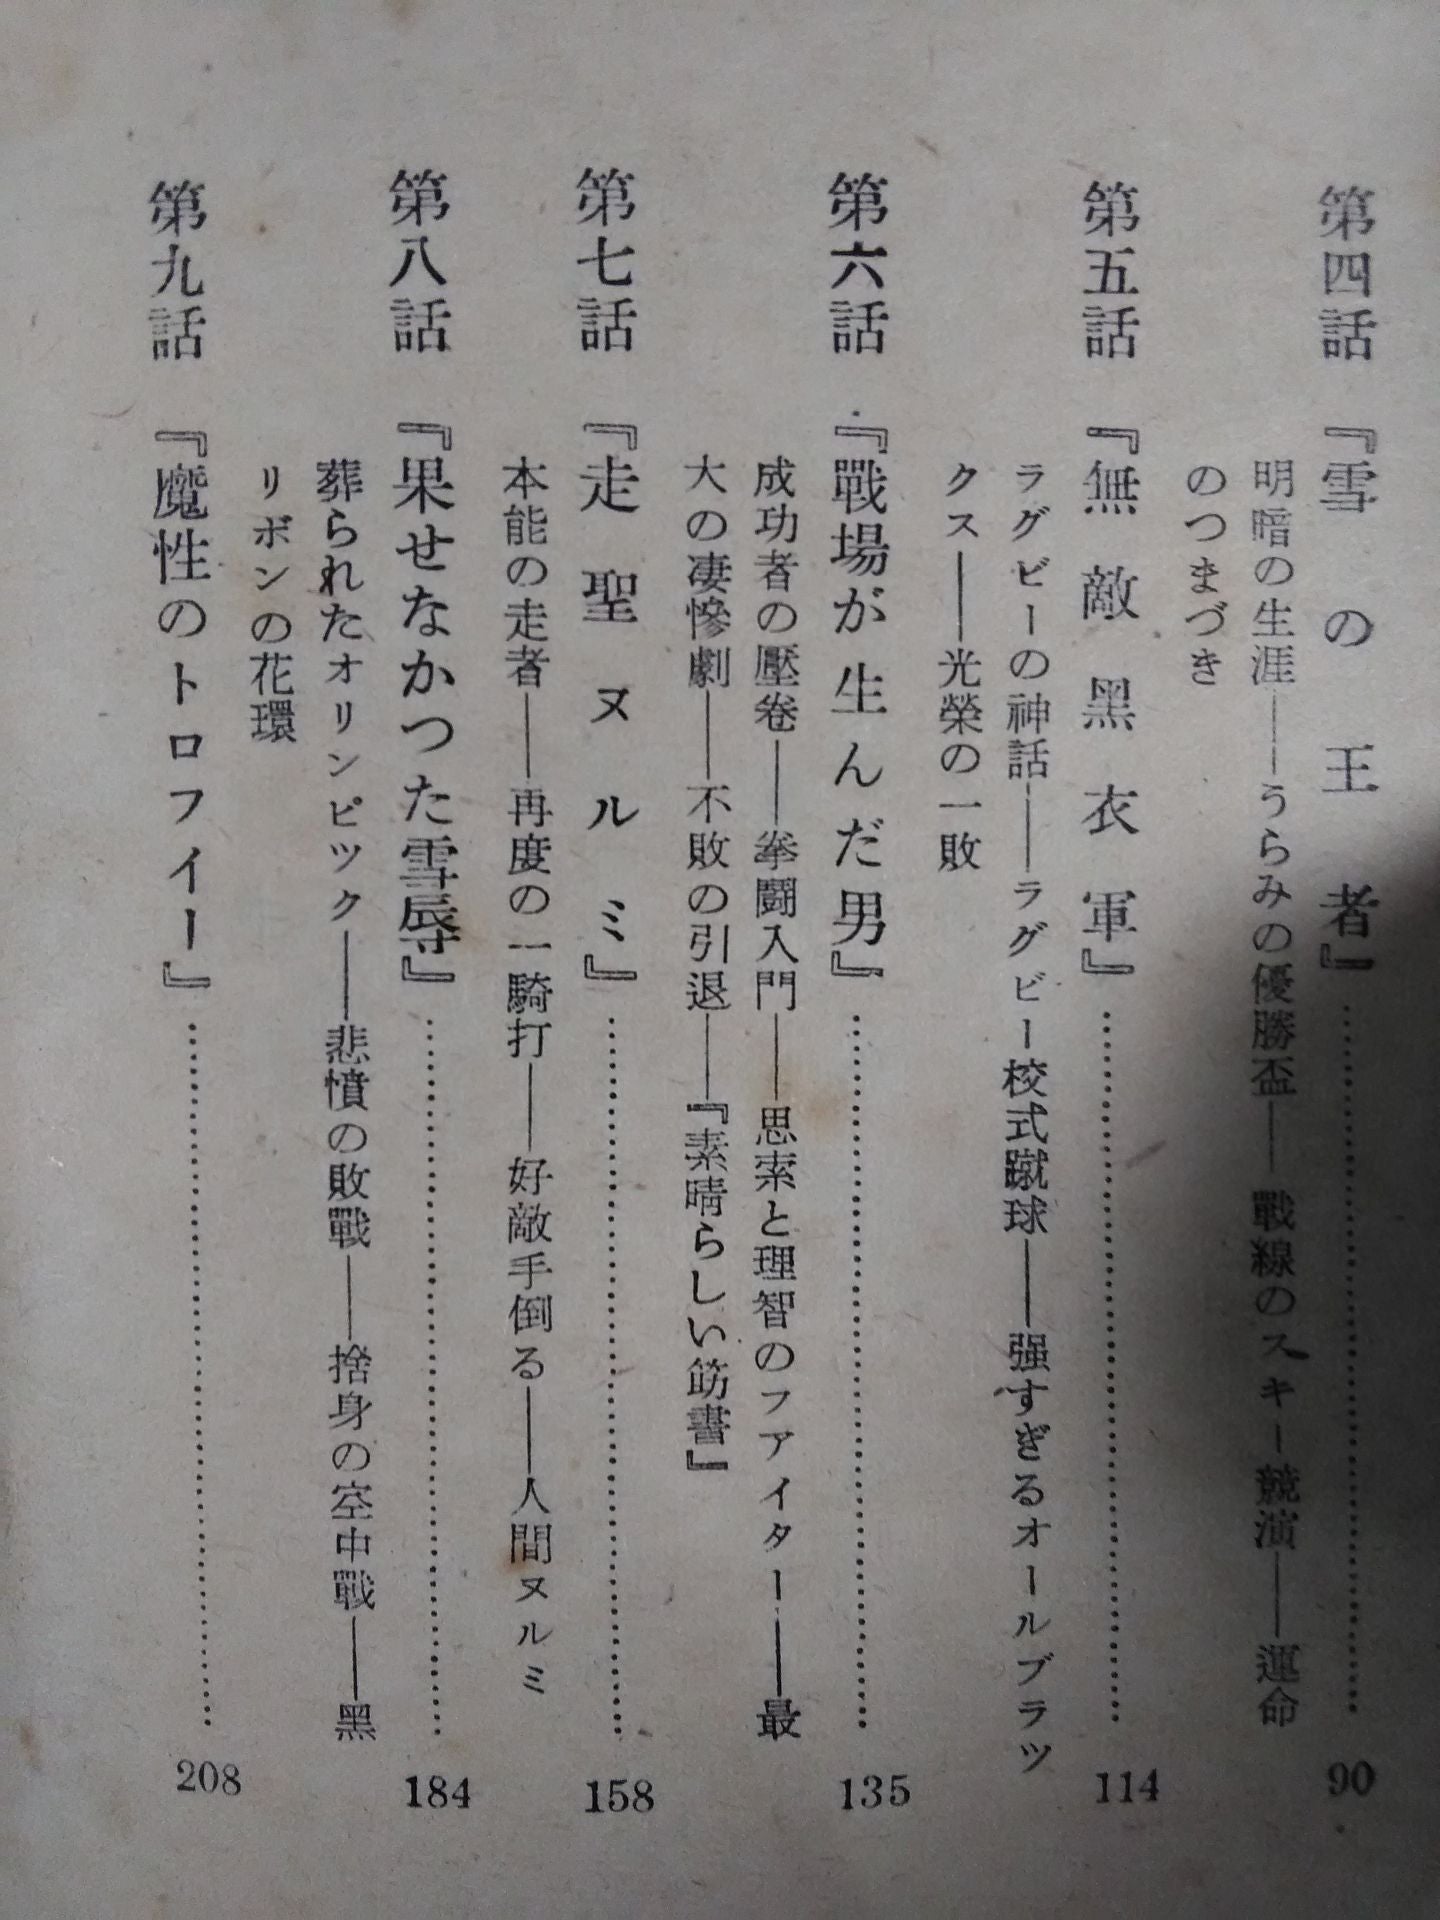 第四話 『雪の王者』……………………90
明暗の生涯――うらみの優勝盃――戰線のスキー競演――運命
のつまづき
第五話 『無敵黑衣軍』……………………114
ラグビーの神話――ラグビー校式蹴球――强すぎるオールブラツ
クス――光榮の一敗
第六話 『戰場が生んだ男』……………………135
成功者の壓卷――拳鬪入門――思索と理智のフアイター――最
大の凄慘劇――不敗の引退――『素晴らしい筋書』
第七話 『走聖ヌルミ』……………………158
本能の走者――再度の一騎打――好敵手倒る――人間ヌルミ
第八話 『果せなかつた雪辱』……………………184
葬られたオリンピツク――悲憤の敗戰――捨身の空中戰――黑
リボンの花環
第九話 『魔性のトロフイー』……………………208